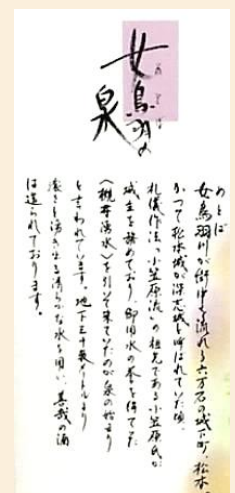 女鳥羽の
めとば
泉
めとば
女鳥羽川が街中を流れる六万石の城下町、松本。
かつて松本城が深志城と呼ばれていた頃、
礼儀作法、小笠原流の祖先である小笠原氏が
城主を務めており、御用水の巻を得てた
〈槻井湧水〉を引いて来ていたのが泉の始まり
と言われています。地下三十米メートルより
滾々と湧き出る清らかな水を用い、善哉の酒
は造られております。